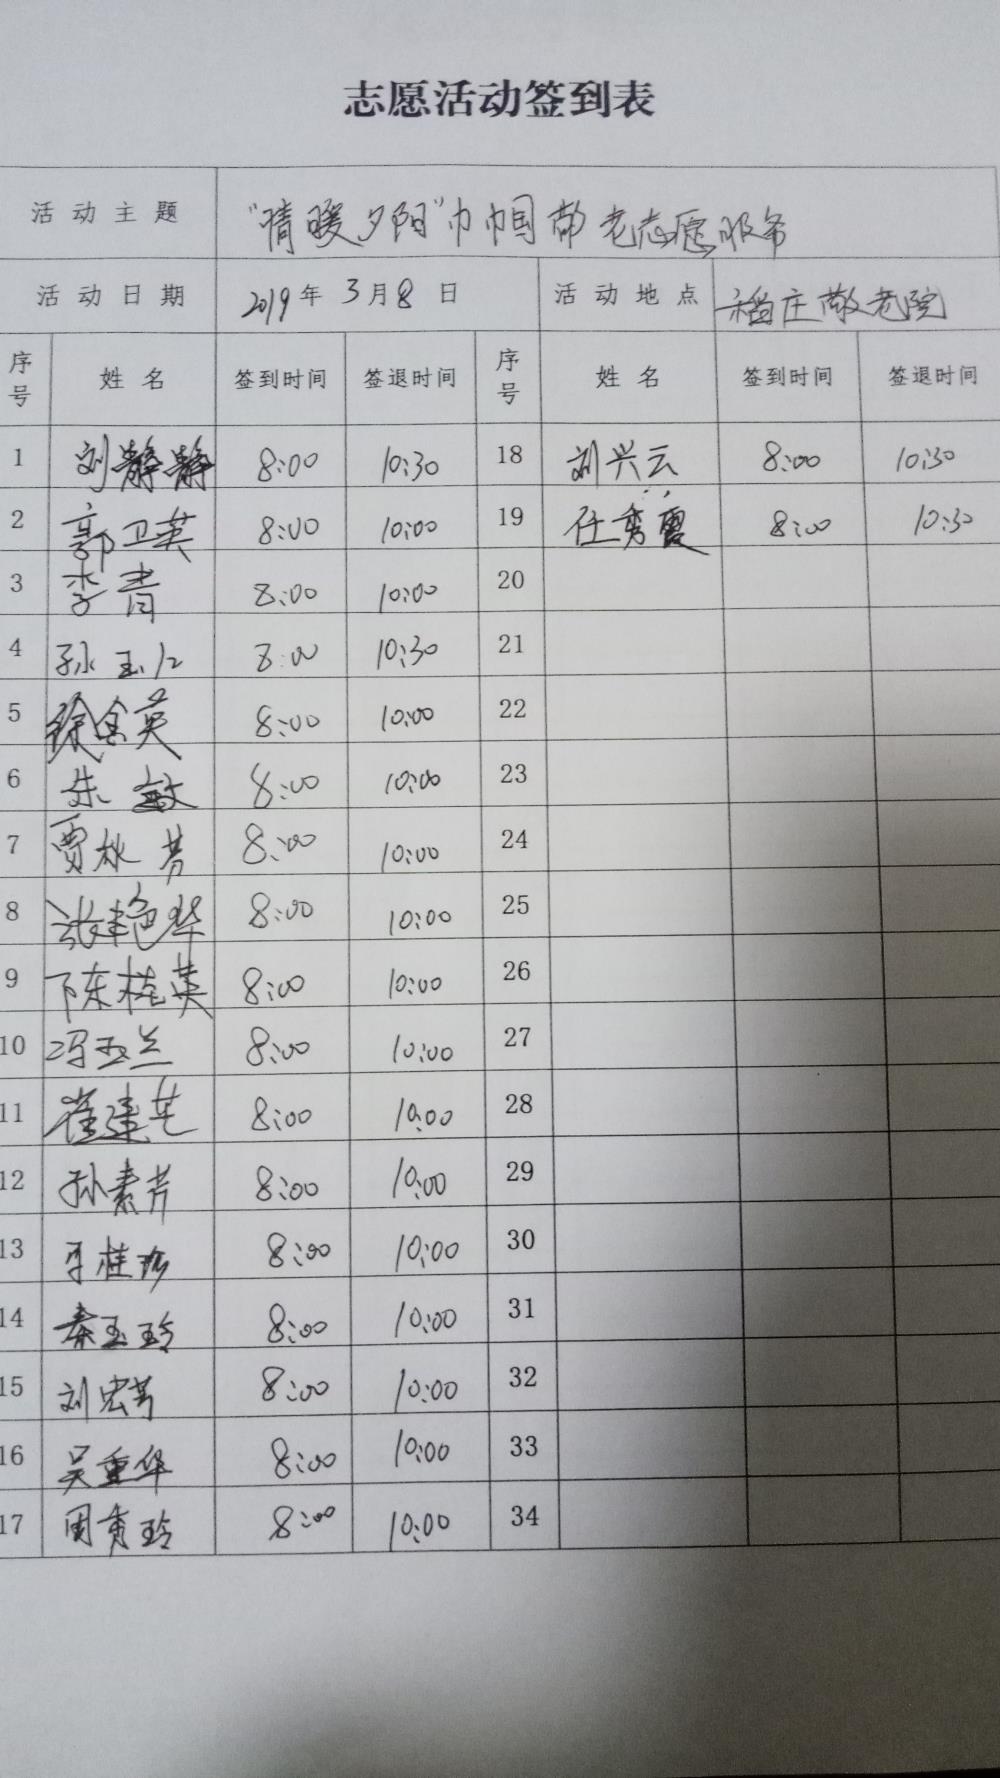 志愿活动签到表
活动主题 "情暖夕阳"巾帼帮老志愿服务
活动日期 2019年3月8日 活动地点 稻庄敬老院
序号 姓名 签到时间 签退时间 序号 姓名 签到时间 签退时间
1 刘静静 8:00 10:30 18 刘兴云 8:00 10:30
2 郭卫英 8:00 10:00 19 任秀霞 8:00 10:30
3 李青 8:00 10:00 20
4 孙玉 8:00 10:30 21
5 徐金英 8:00 10:00 22
6 朱敏 8:00 10:00 23
7 贾秋芳 8:00 10:00 24
8 张艳华 8:00 10:00 25
9 陈桂英 8:00 10:00 26
10 冯玉兰 8:00 10:00 27
11 崔建 8:00 10:00 28
12 孙素芳 8:00 10:00 29
13 桂珍 8:00 10:00 30
14 秦玉玲 8:00 10:00 31
15 刘宏芳 8:00 10:00 32
16 吴重华 8:00 10:00 33
17 周秀玲 8:00 10:00 34